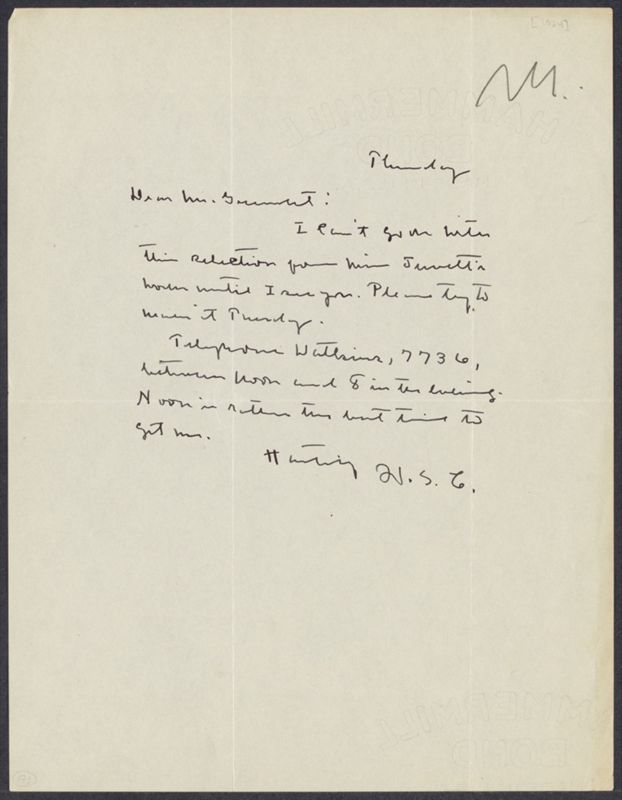 [1924]
M.
Thursday
Dear Mr. Greenslet:
I can't go on with
the selection from Miss Jewett's
work until I see you. Please try to
Telephone Watkins, 7736,
between noon and 8 in the evening.
Noon is rather the best time to
get me.
Hastily W. S. C.
HAMMERMILL
BOND
HAMMERMILL
BOND